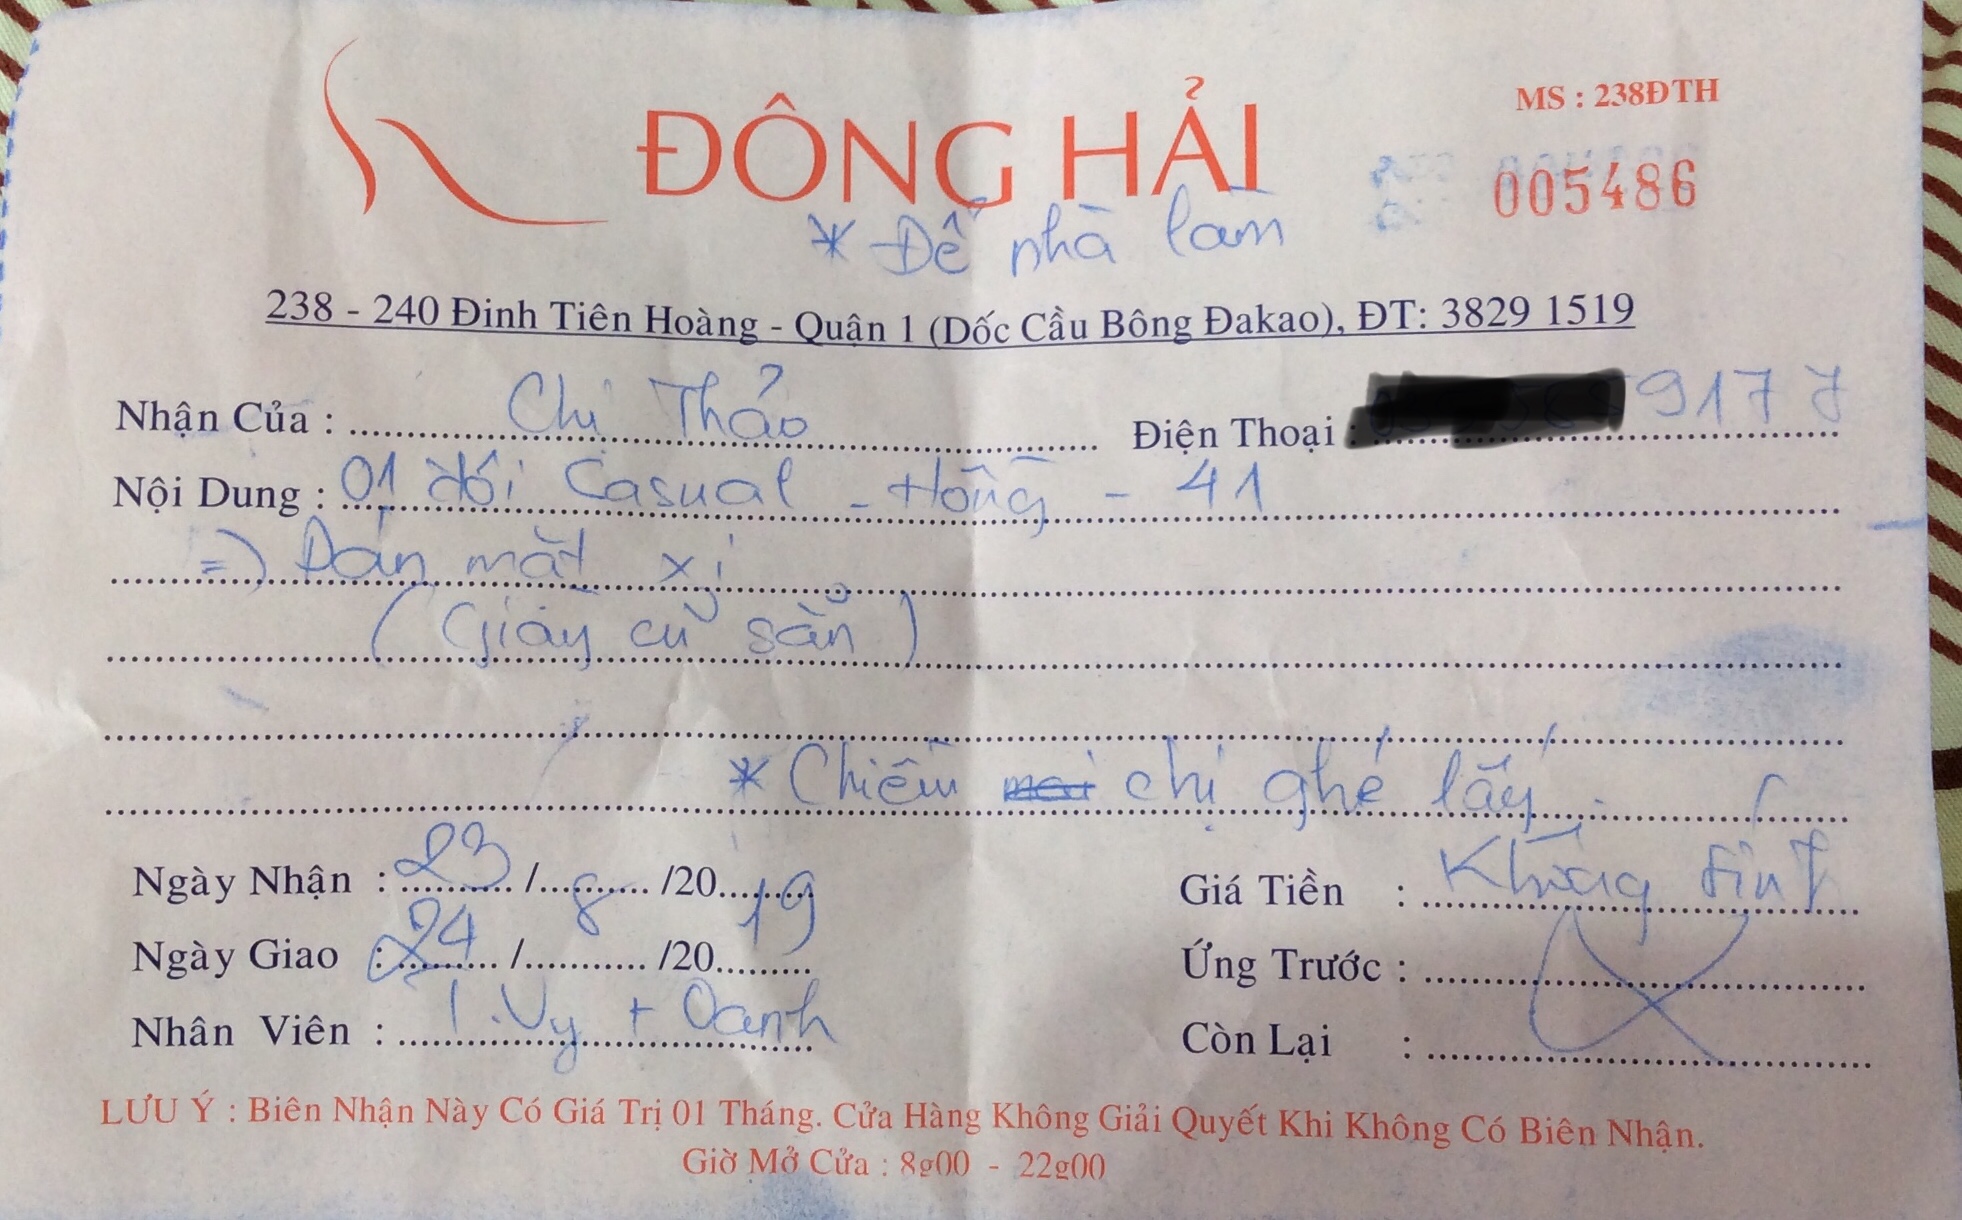 ĐÔNG HẢI
MS : 238ĐTH
005486
* Đế nhà làm
238 - 240 Đinh Tiên Hoàng - Quận 1 (Dốc Cầu Bông Đakao), ĐT: 3829 1519
Nhận Của : Chị Thảo Điện Thoại : 9177
Nội Dung : 01 đôi Casual - Hồng - 41
=> Dán mặt xi
(Giày cũ sẵn)
* Chiều chị ghé lấy.
Ngày Nhận : 23 / 8 /2019 Giá Tiền : Không tính
Ngày Giao : 24 / /20 Ứng Trước :
Nhân Viên : T.Vy + Oanh Còn Lại :
LƯU Ý : Biên Nhận Này Có Giá Trị 01 Tháng. Cửa Hàng Không Giải Quyết Khi Không Có Biên Nhận.
Giờ Mở Cửa : 8g00 - 22g00